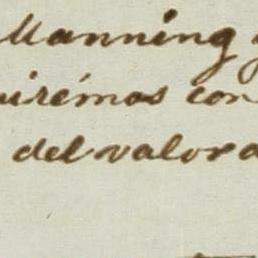 Manning
uirémos con
del valor a